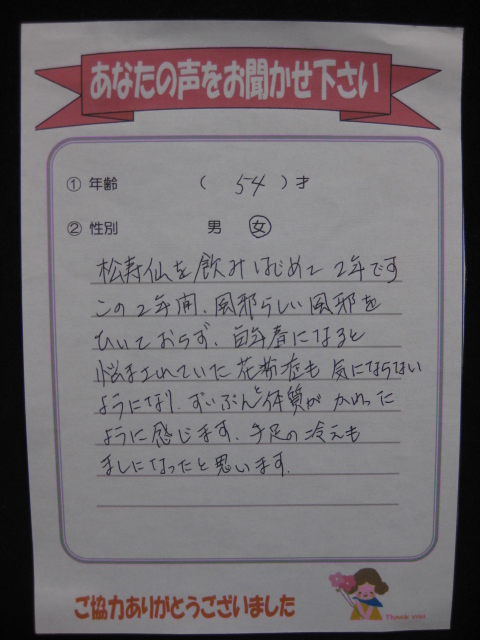 あなたの声をお聞かせ下さい
① 年齢 ( 54 ) 才
② 性別 男 女
松寿仙を飲みはじめて 2年です
この2年間、風邪らしい風邪を
ひいておらず、毎年春になると
悩まされていた花粉症も 気にならない
ようになり、ずいぶんと体質が かわった
ように感じます、手足の冷えも
ましになったと思います。
ご協力ありがとうございました
Thank you